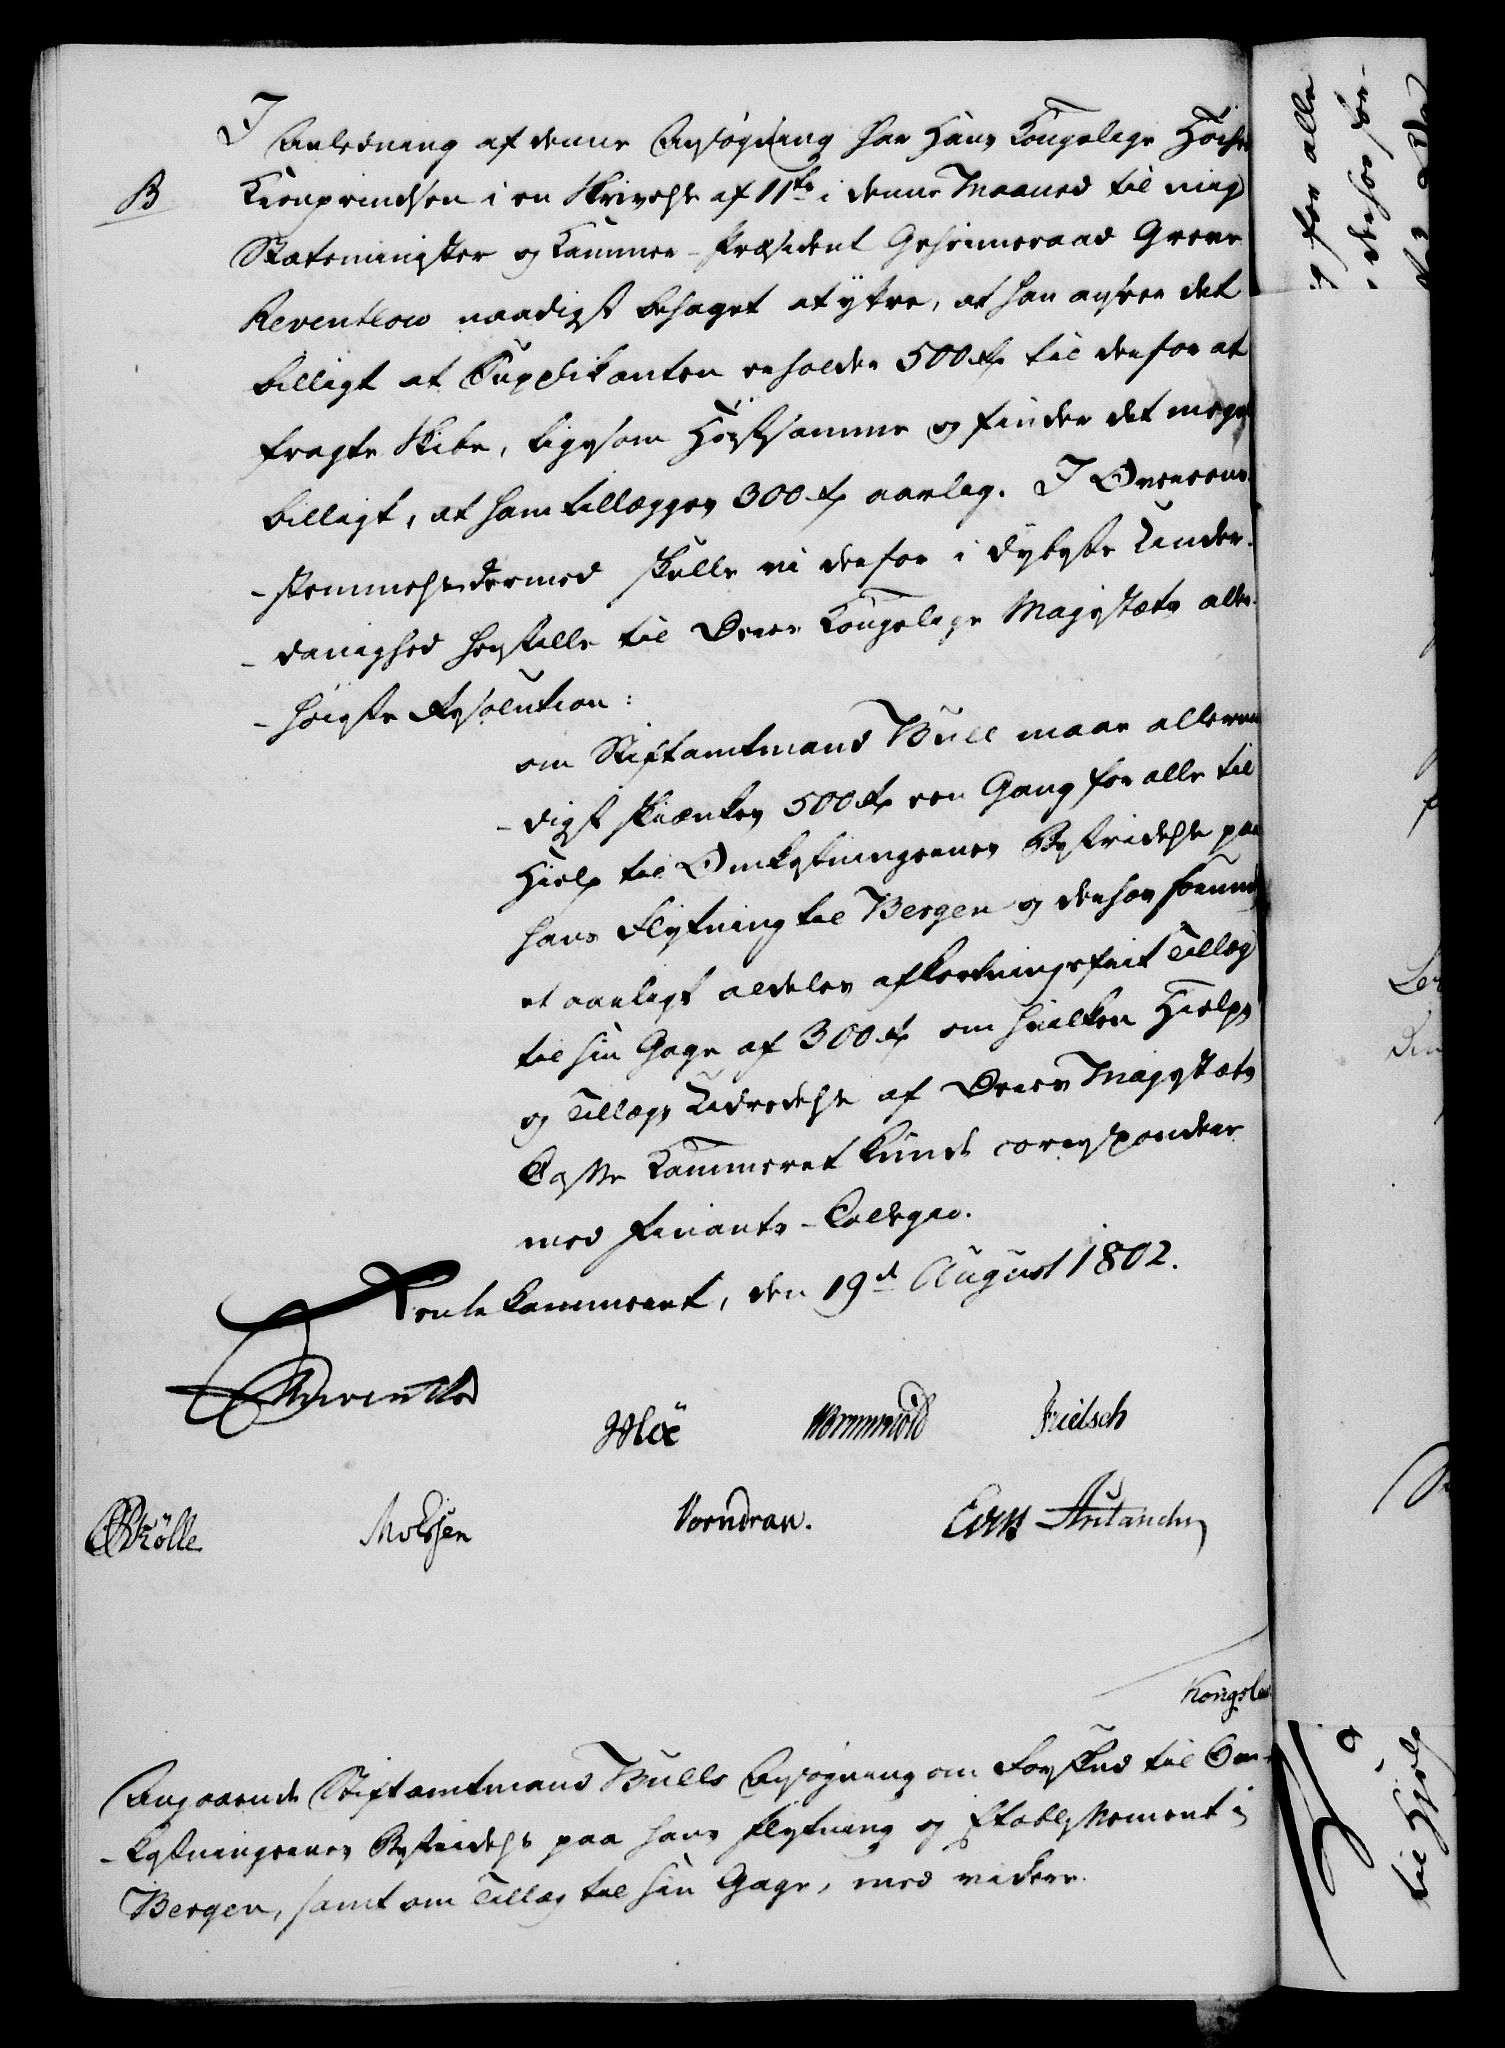 I
Anledning af denne Ansøgning har Hans Kongelige Høihed
B
Kronprindsen i en Skrivelse af 11te i denne Maaned til mig
Statsminister og Kammer-Præsident Geheimeraad Greve
Reventlow naadigst behaget at yttre, at han anseer det
billigt at Supplikanten erholder 500 Rd til derfor at
fragte Skibe, ligesom Høistsamme og finder det meget
billigt, at ham tillægges 300 Rd aarlig. I Overeens-
-stemmelse dermed skulle vi derfor i dybeste Under-
-danighed henstille til Deres Kongelige Majestæts aller-
-høieste Resolution:
om Stiftamtmand Bull maae allernaa-
-digst skienkes 500 Rd een Gang for alle til
Hielp til Omkostningernes Bestridelse paa
hans Flytning til Bergen og derhos forundes
et aarligt aldeles afkortningsfrit Tillæg
til sin Gage af 300 Rd om hvilken Hielps
og Tillægs Udredelse af Deres Majestæts
Casse Kammeret kunde correspondere
med Finants-Collegio.
Rentekammeret, den 19d August 1802.
Reventlow
Wormskiold Frielsch
Krølle Vorndran.
Kongslev
Angaaende Stiftamtmand Bulls Ansøgning om Forskud til Om-
-kostningernes Bestridelse paa hans Flytning og Etablissement i
Bergen, samt om Tillæg til sin Gage, med videre.
g for alle
derhos for-
til Hjelp